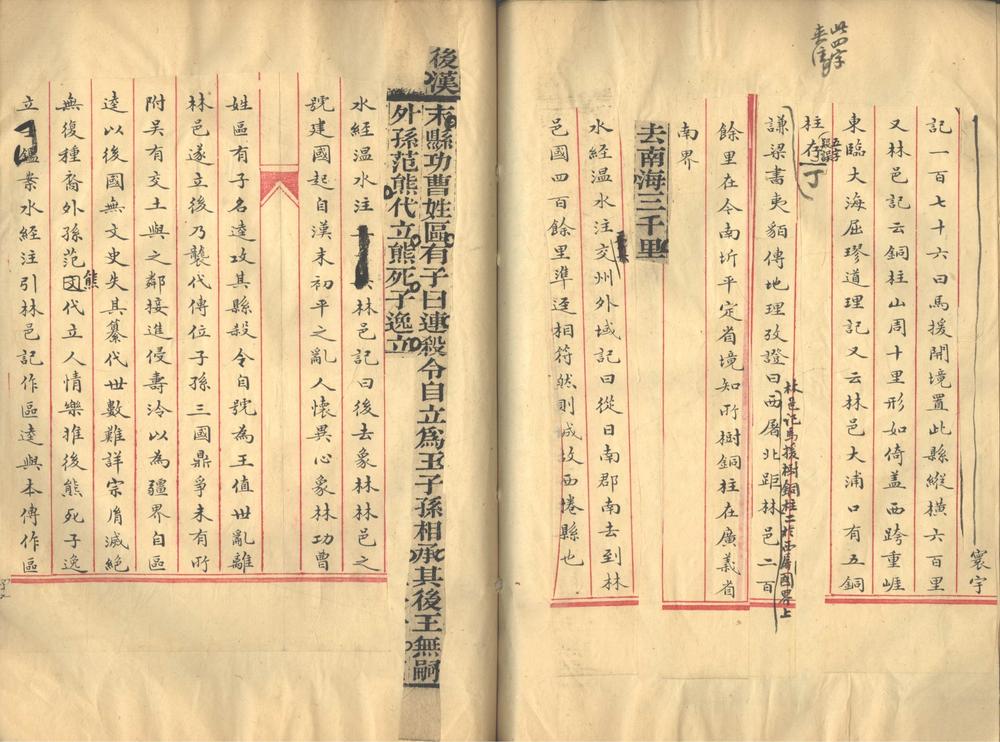 此四字
寰宇
記一百七十六曰馬援開境置此縣縱橫六百里
又林邑記云銅柱山周十里形如倚蓋西跨重崖
東臨大海屈璆道理記又云林邑大浦口有五銅
柱存
丁
謙梁書夷貊傳地理攷證曰西屠北距林邑二百
林邑記馬援樹銅柱二於西屠國界上
餘里在今南圻平定省境知所樹銅柱在廣義省
南界
去南海三千里
水經溫水注交州外域記曰從日南郡南去到林
邑國四百餘里準逕相符然則城故西捲縣也
後漢末縣功曹姓區有子曰連殺令自立爲王子孫相承其後王無嗣
外孫范熊代立熊死子逸立
水經溫水注林邑記曰後去象林林邑之
號建國起自漢末初平之亂人懷異心象林功曹
姓區有子名逵攻其縣殺令自號為王值世亂離
林邑遂立後乃襲代傳位子孫三國鼎爭未有所
附吳有交土與之鄰接進侵壽泠以為疆界自區
逵以後國無文史失其纂代世數難詳宗胤滅絕
無復種裔外孫范熊代立人情樂推後熊死子逸
立
案水經注引林邑記作區逵與本傳作區